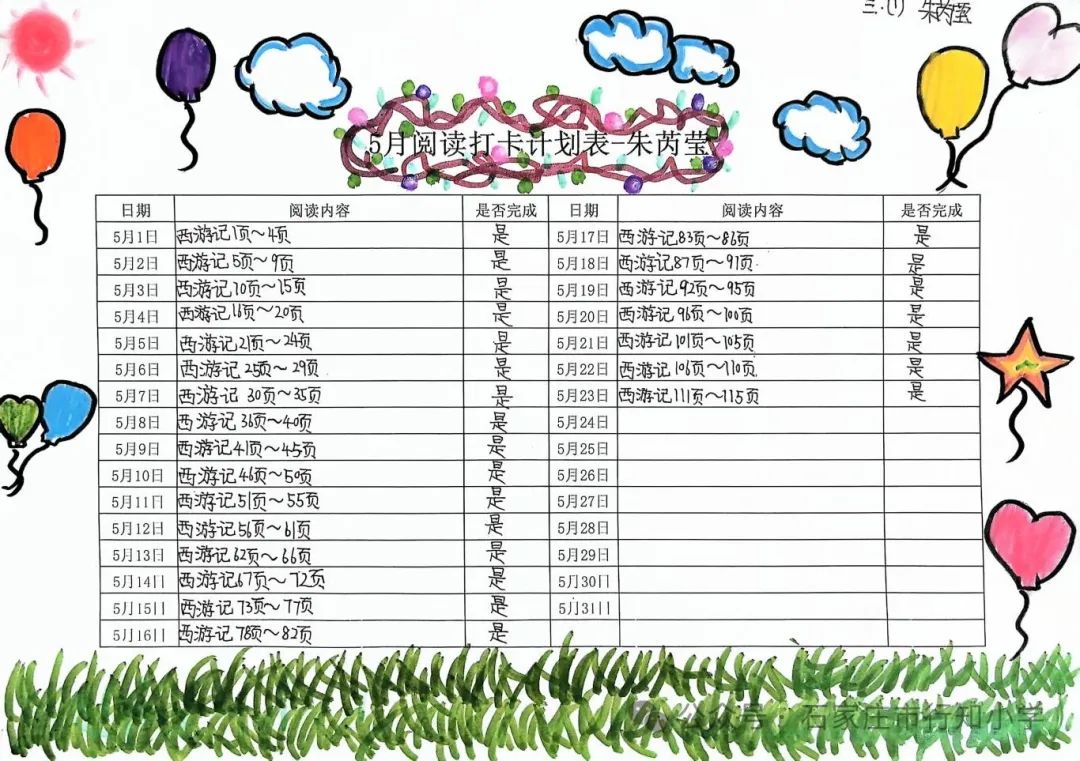 三.(1) 朱芮莹
5月阅读打卡计划表-朱芮莹
日期 阅读内容 是否完成 日期 阅读内容 是否完成
5月1日 西游记1页～4页 是 5月17日 西游记83页～86页 是
5月2日 西游记5页～9页 是 5月18日 西游记87页～91页 是
5月3日 西游记10页～15页 是 5月19日 西游记92页～95页 是
5月4日 西游记16页～20页 是 5月20日 西游记96页～100页 是
5月5日 西游记21页～24页 是 5月21日 西游记101页～105页 是
5月6日 西游记25页～29页 是 5月22日 西游记106页～110页 是
5月7日 西游记30页～35页 是 5月23日 西游记111页～115页 是
5月8日 西游记36页～40页 是 5月24日
5月9日 西游记41页～45页 是 5月25日
5月10日 西游记46页～50页 是 5月26日
5月11日 西游记51页～55页 是 5月27日
5月12日 西游记56页～61页 是 5月28日
5月13日 西游记62页～66页 是 5月29日
5月14日 西游记67页～72页 是 5月30日
5月15日 西游记73页～77页 是 5月31日
5月16日 西游记78页～82页 是
公众号：石家庄市行知小学